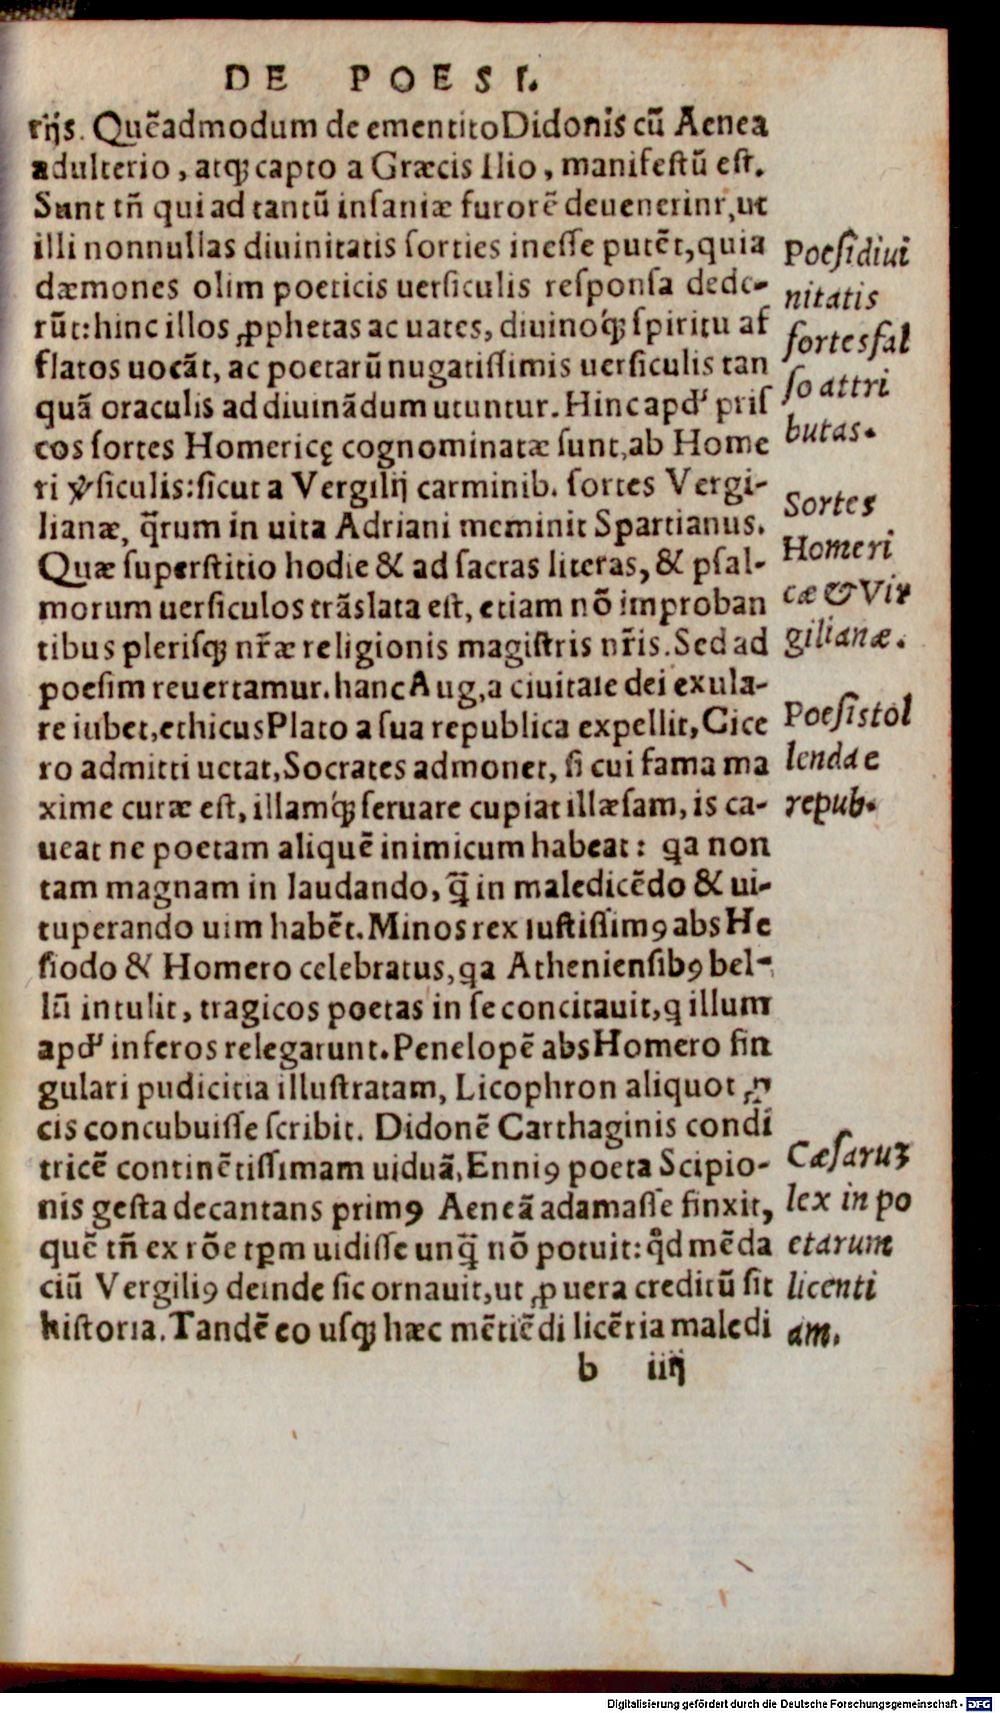 DE POESI.
rijs. Quẽadmodum de ementito Didonis cũ Aenea
adulterio, atqꝫ capto a Græcis Ilio, manifestũ est.
Sunt tñ qui ad tantũ insaniæ furorẽ deuenerint, ut
illi nonnullas diuinitatis sorties inesse putẽt, quia
dæmones olim poeticis uersiculis responsa dede-
rũt: hinc illos ꝓphetas ac uates, diuinoq́ꝫ spiritu af
flatos uocãt, ac poetarũ nugatissimis uersiculis tan
quã oraculis ad diuinãdum utuntur. Hinc apd' pris
cos sortes Homericę cognominatæ sunt, ab Home
ri ꝟsiculis: sicut a Vergilij carminib. sortes Vergi-
lianæ, q̃rum in uita Adriani meminit Spartianus.
Quæ superstitio hodie & ad sacras literas, & psal-
morum uersiculos trãslata est, etiam nõ improban
tibus plerisqꝫ nr̃æ religionis magistris nr̃is. Sed ad
poesim reuertamur. hanc Aug, a ciuitate dei exula-
re iubet, ethicus Plato a sua republica expellit, Cice
ro admitti uetat, Socrates admonet, si cui fama ma
xime curæ est, illamq́ꝫ seruare cupiat illæsam, is ca-
ueat ne poetam aliquẽ inimicum habeat: ꝗa non
tam magnam in laudando, ꝗ̃ in maledicẽdo & ui-
tuperando uim habẽt. Minos rex iustissimꝯ abs He
siodo & Homero celebratus, ꝗa Atheniensibꝯ bel-
lũ intulit, tragicos poetas in se concitauit, ꝗ illum
apd' inferos relegarunt. Penelopẽ abs Homero sin
gulari pudicitia illustratam, Licophron aliquot ꝓ
cis concubuisse scribit. Didonẽ Carthaginis condi
tricẽ continẽtissimam uiduã, Enniꝯ poeta Scipio-
nis gesta decantans primꝯ Aeneã adamasse finxit,
quẽ tñ ex rõe tꝑm uidisse unꝗ̃ nõ potuit: qd̊ mẽda
ciũ Vergiliꝯ deinde sic ornauit, ut ꝓ uera creditũ sit
historia. Tandẽ eo usqꝫ hæc mẽtiẽdi licẽtia maledi
b iiij
Poesi diui
nitatis
sortes fal
so attri
butas.
Sortes
Homeri
cæ & Vir
gilianæ.
Poesis tol
lenda e
repub.
Cæsaruꝫ
lex in po
etarum
licenti
am.
Digitalisierung gefördert durch die Deutsche Forschungsgemeinschaft - DFG